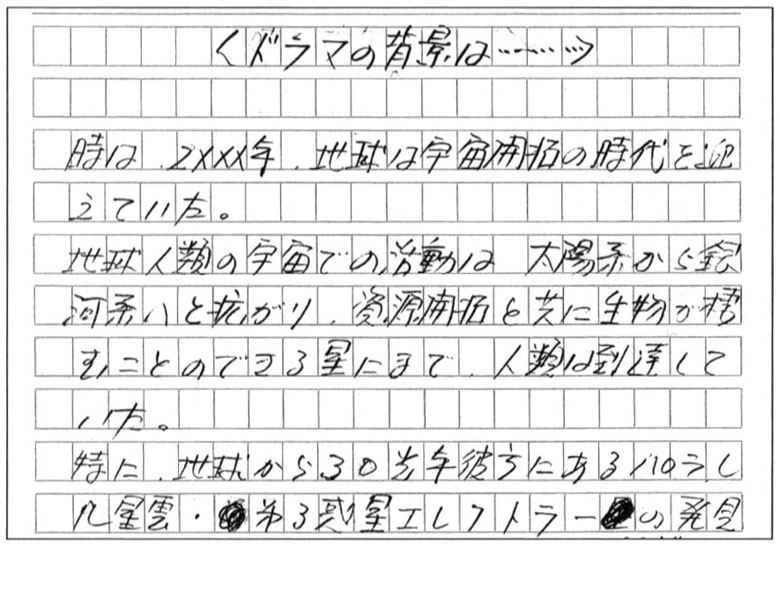 〈ドラマの背景は………〉
時は、2XXX年、地球は宇宙開拓の時代を迎
えていた。
地球人類の宇宙での活動は 太陽系から銀
河系へと拡がり、資源開拓と共に生物が棲
むことのできる星にまで、人類は到達して
いた。
特に、地球から30光年彼方にあるパラレ
凡星雲・第3惑星エレクトラーの発見